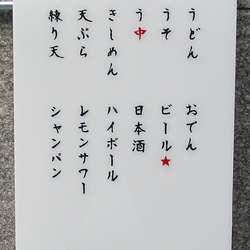 うどん
うそ
う中
きしめん
天ぷら
練り天
おでん
ビール★
日本酒
ハイボール
レモンサワー
シャンパン